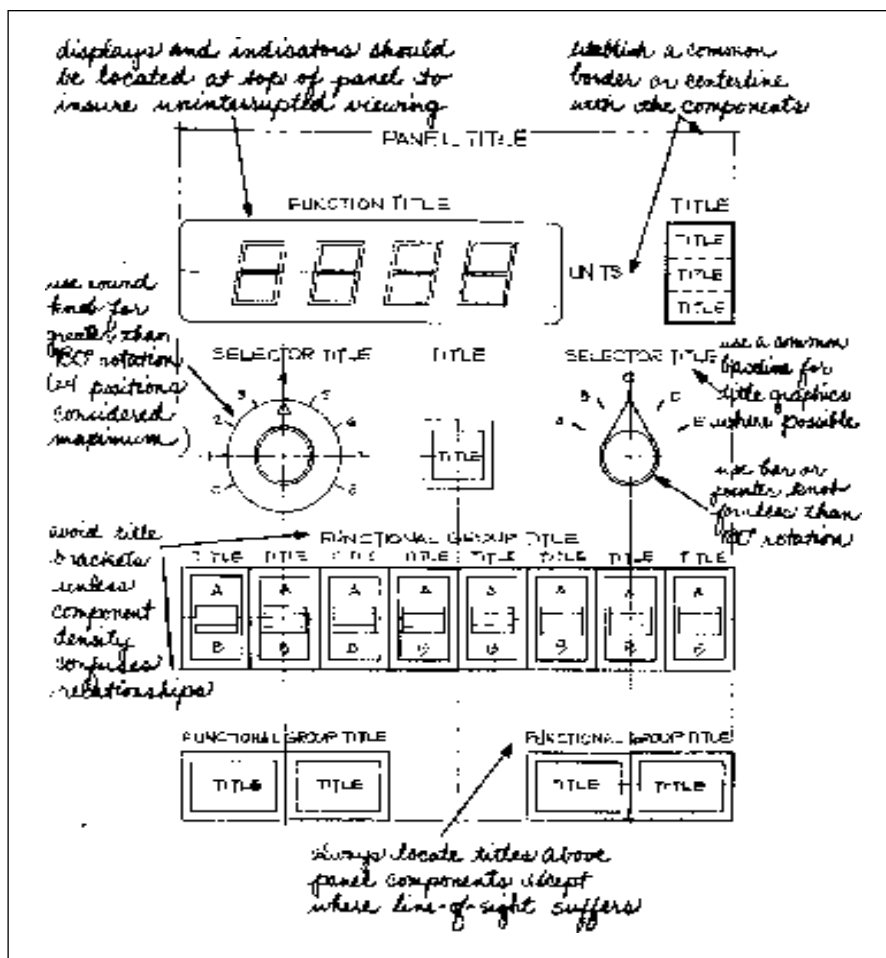 displays and indisators should
be located at top of panel to
insure uninterrupted viewing
establish a common
border or centerline
with other components
PANEL TITLE
FUNCTION TITLE
TITLE
TITLE
TITLE
TITLE
UNITS
use round
knob for
greater than
180° rotation
(24 positions
considered
maximum)
SELECTOR TITLE
TITLE
SELECTOR TITLE
use a common
baseline for
title graphics
where possible
3
2
1
5
6
7
8
TITLE
A
B
C
D
E
use bar or
pointer knob
for less than
180° rotation
avoid title
brackets
unless
component
density
confuses
relationships
FUNCTIONAL GROUP TITLE
TITLE TITLE TITLE TITLE TITLE TITLE TITLE TITLE
A A A A A A A A
B B B B B B B B
FUNCTIONAL GROUP TITLE
FUNCTIONAL GROUP TITLE
TITLE TITLE
TITLE TITLE
always locate titles above
panel components except
where line-of-sight suffers